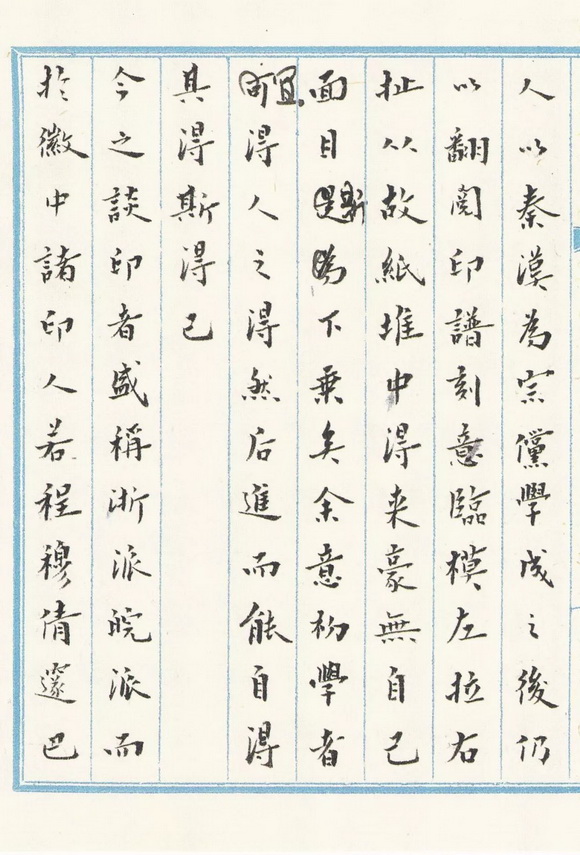 人以秦漢為宗儻學成之後仍
以翻閱印譜刻意臨模左拉右
扯从故紙堆中得来豪無自己
面目斯為下乗矣余意初學者
宜得人之得然后進而能自得
其得斯得已
今之談印者盛稱浙派皖派而
於徽中諸印人若程穆倩邃巴